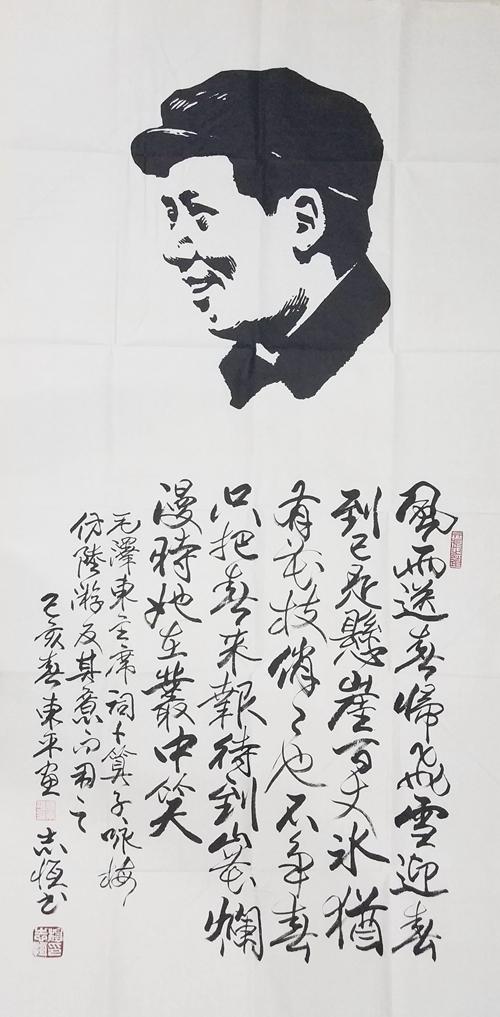 風雨送春歸飛雪迎春
到已是懸崖百丈冰猶
有花枝俏俏也不爭春
只把春來報待到山花爛
漫時她在叢中笑
毛澤東主席詞卜算子詠梅
仿陸游反其意而用之
己亥春東平画
志恒书